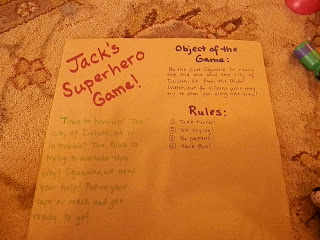 Jack's
Superhero
Game!
Time to hero up! The
city of Duluth, GA is
in trouble! The Blob is
trying to overtake this
city! Squaddies, we need
your help! Put on your
cape or mask and get
ready to go!
Object of the
Game:
Be the first Squaddie to reach
the end and save the city of
Duluth, GA from the Blob!
Watch out for villains who may
try to stop you along the way!
Rules:
1 Take turns!
2 No crying!
3 Be patient!
4 Have fun!